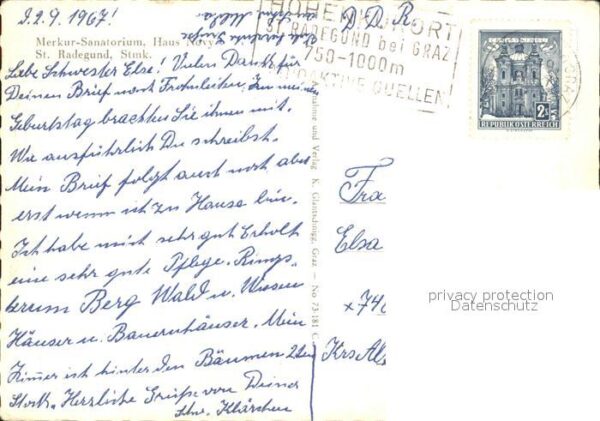 2.2.9. 1967!
Merkur-Sanatorium, Haus Novy
St. Radegund, Stmk.
Liebe Schwester Else! Vielen Dank für
Deinen Brief noch Fronleiten, Zu meinem
Geburtstag brachten Sie ihn mit.
Wie ausführlich Du schreibst.
Mein Brief folgt auch noch aber
erst wenn ich zu Hause bin.
Ich habe mich sehr gut erholt
eine sehr gute Pflege. Rings-
herum Berg Wald u. Wiesen
Häuser u. Bauernhäuser. Mein
Zimmer ist hinter den Bäumen 2ten
Stock. Herzliche Grüsse von Deiner
Schw. Klärchen
HÖHENLUFTKURORT
ST. RADEGUND bei GRAZ
750-1000m
RADIOAKTIVE QUELLEN
GRAZ
2S
REPUBLIK ÖSTERREICH
D D R.
Aufnahme und Verlag K. Glantschnigg, Graz — No 73 181 C
Fra
Elsa
x 740
Krs Al
privacy protection
Datenschutz